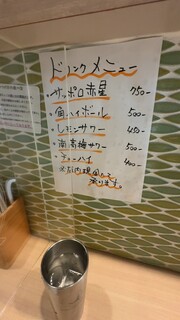 ドリンクメニュー
・サッポロ赤星 750-
・角ハイボール 500-
・レモンサワー 450-
・南高梅サワー 500-
・チューハイ 400-
※店内現金のみ